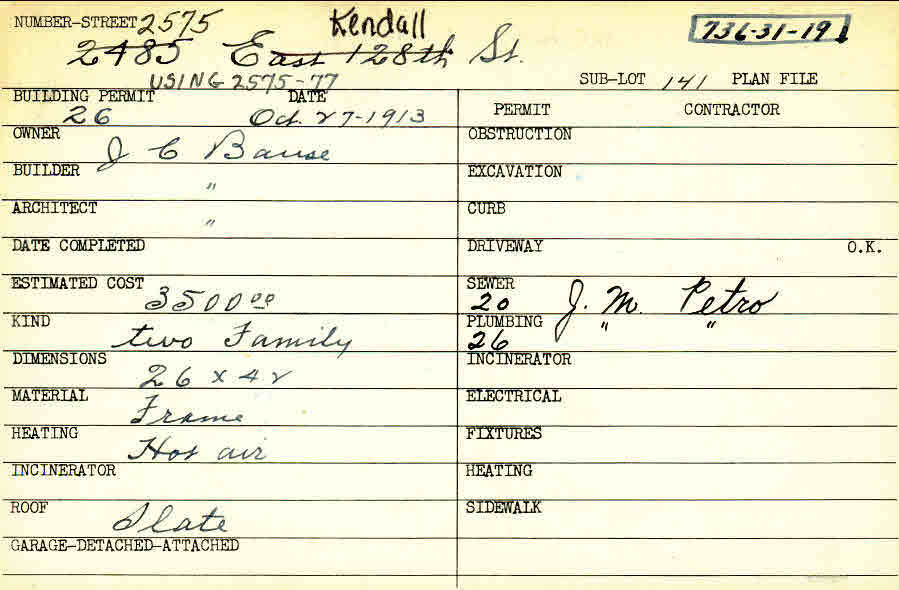 Kendall
NUMBER-STREET 2575
736-31-19
2485 East 128th St.
USING 2575-77
SUB-LOT 141 PLAN FILE
BUILDING PERMIT DATE
26 Oct. 27-1913
PERMIT CONTRACTOR
OWNER J C Bause
BUILDER "
ARCHITECT "
DATE COMPLETED
ESTIMATED COST 3500 00
KIND two Family
DIMENSIONS 26 x 42
MATERIAL Frame
HEATING Hot air
INCINERATOR
ROOF Slate
GARAGE-DETACHED-ATTACHED
OBSTRUCTION
EXCAVATION
CURB
DRIVEWAY O.K.
SEWER
20 J. M. Petro
PLUMBING " "
26
INCINERATOR
ELECTRICAL
FIXTURES
HEATING
SIDEWALK